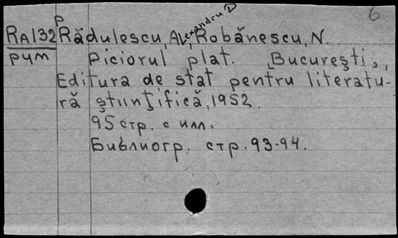 6
Р
RA132 Rădulescu, Alexandru D, Robănescu, N.
рум Piciorul plat. București,
Editura de stat pentru literatu-
ră științifică, 1952.
95 стр. с илл.
Библиогр. стр. 93-94.